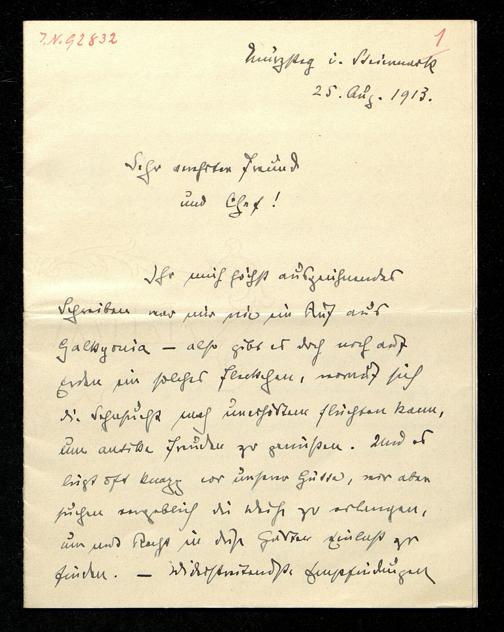 J.N. 92832
1
Mürzsteg i. Steiermark
25. Aug. 1913.
Sehr verehrter Freund
und Chef!
Ihr mich höchst auszeichnendes
Schreiben war mir wie ein Ruf aus
Halkyonia – also gibt es doch noch auf
Erden ein solches Fleckchen, worauf sich
die Sehnsucht nach Unerhörtem flüchten kann,
um antike Freuden zu genießen. Und es
liegt oft knapp vor unserer Hütte, wir aber
suchen vergeblich die Weihe zu erlangen,
um mit Recht in diese Gärten Einlaß zu
finden. – Widerstreitendste Empfindungen